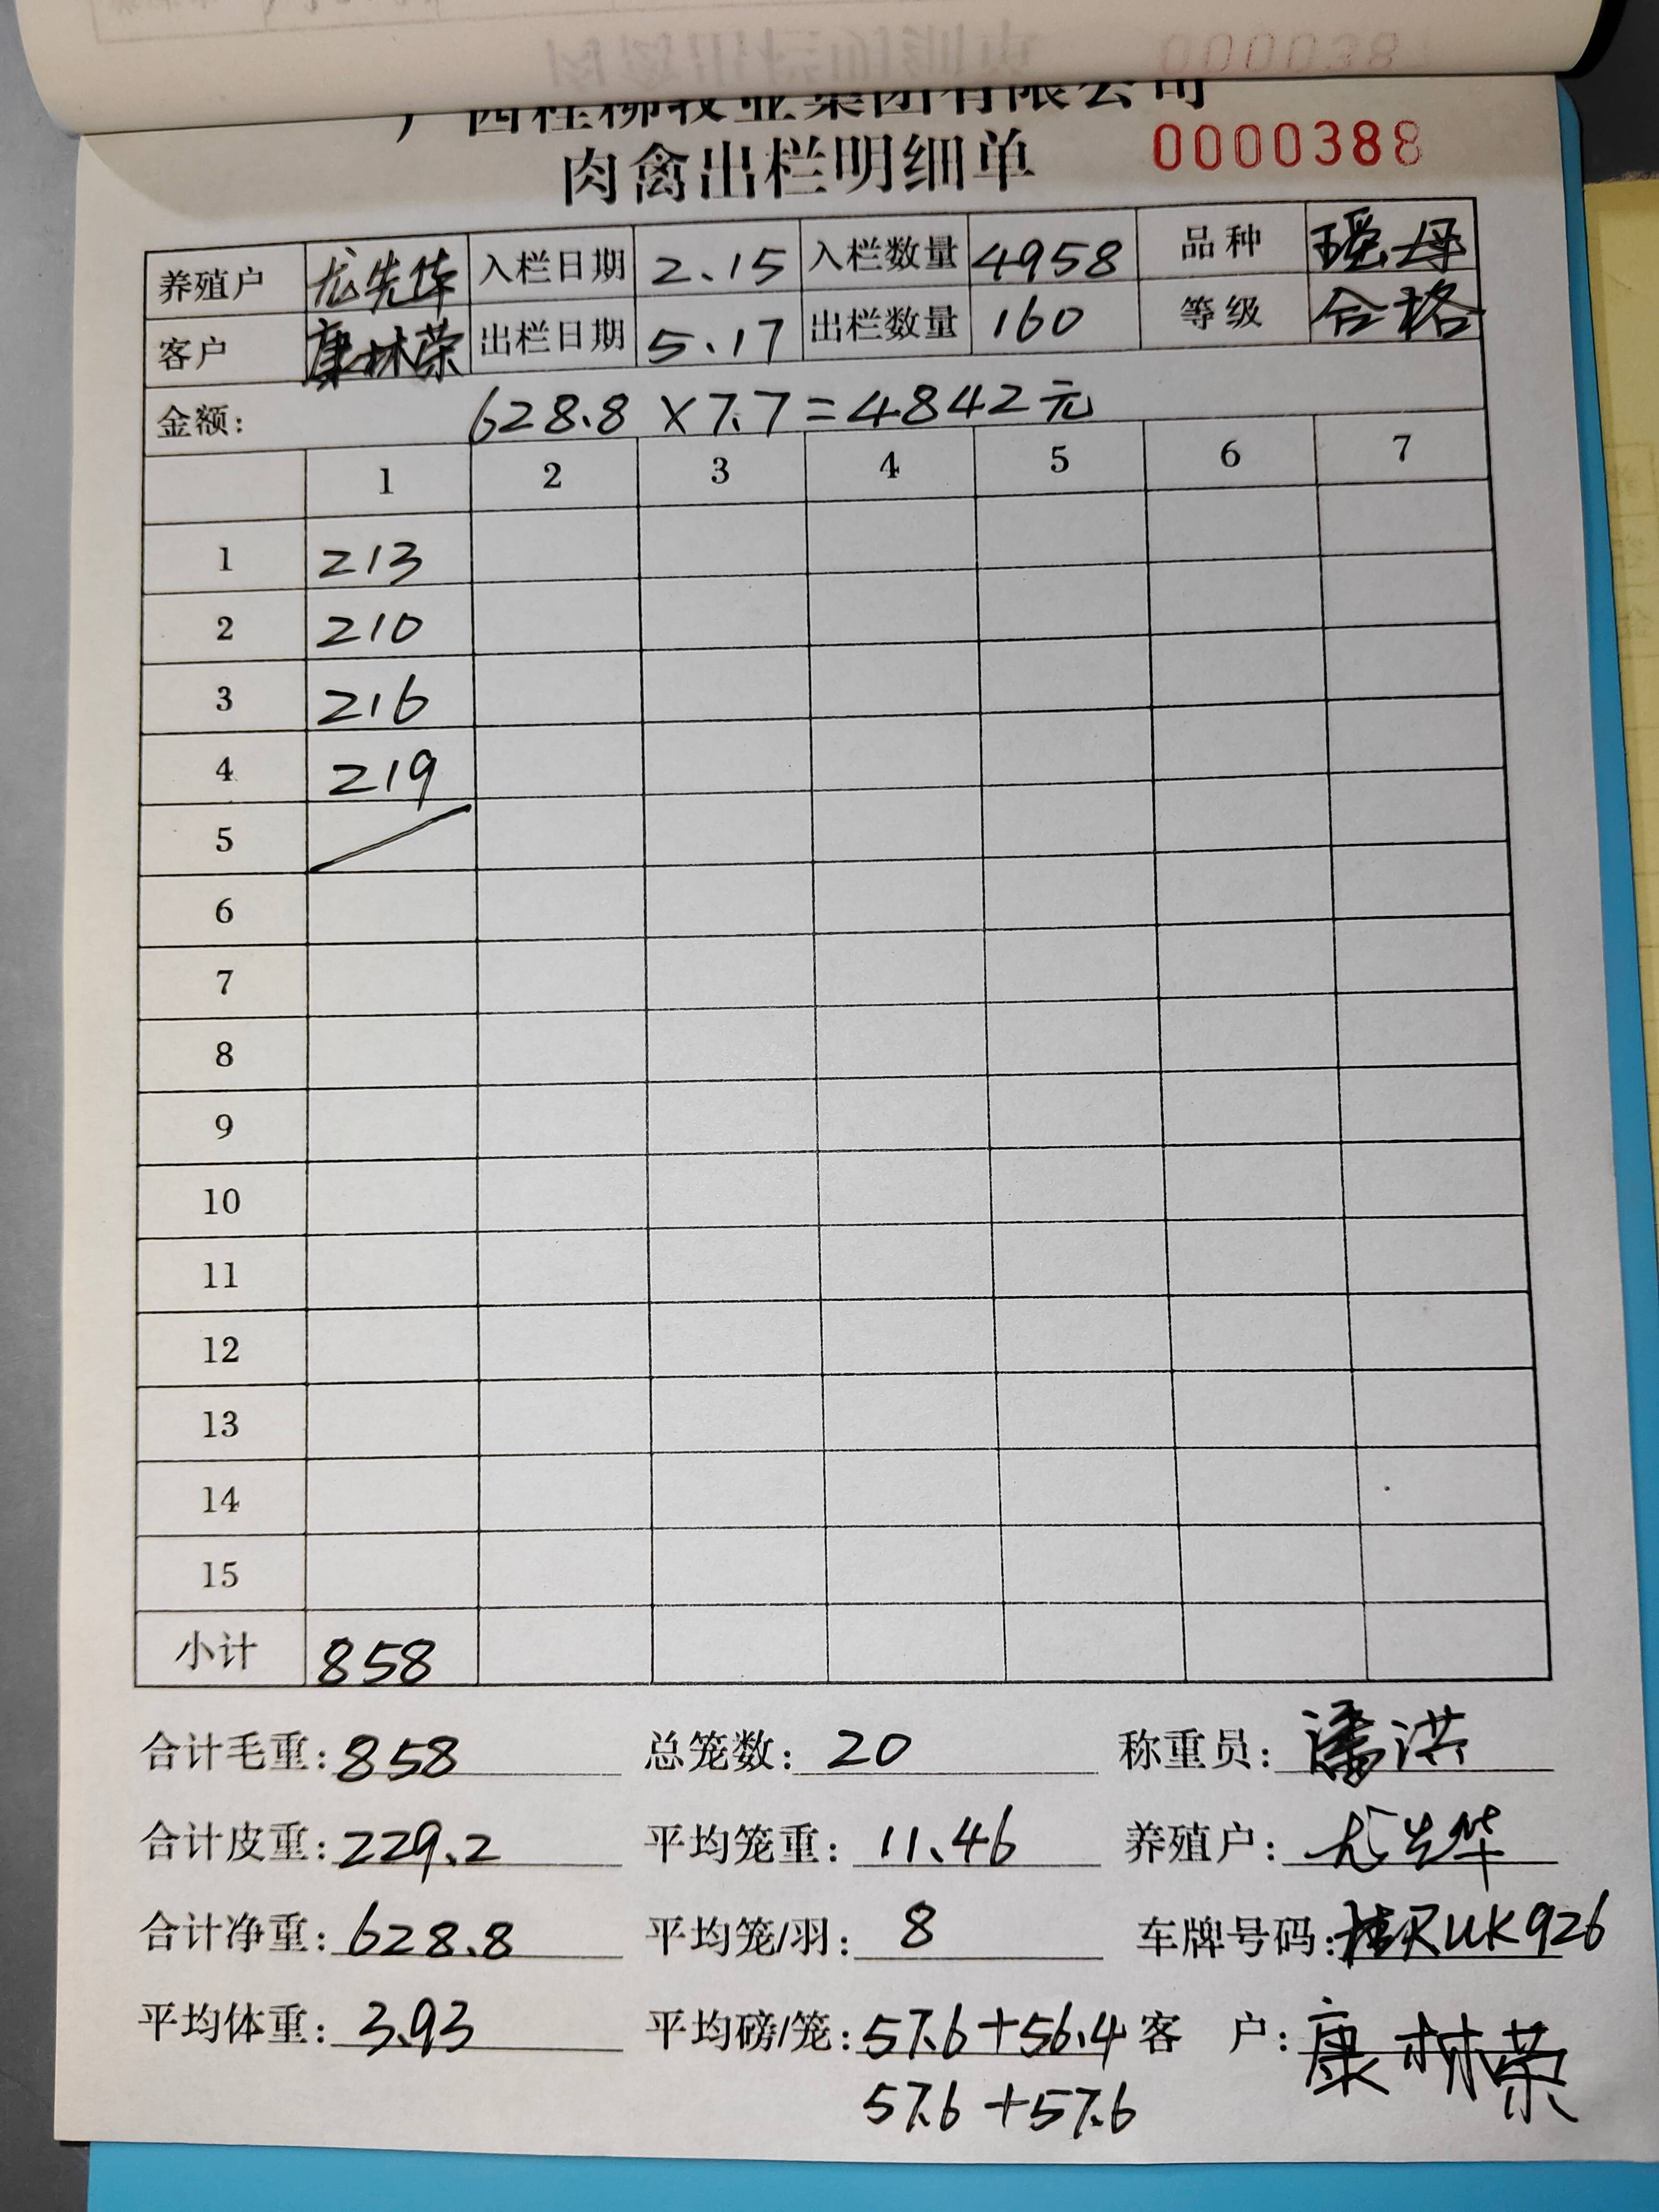 广西桂柳牧业集团有限公司
肉禽出栏明细单 0000388
养殖户 尤先华 入栏日期 2.15 入栏数量 4958 品种 瑶丹
客户 康林荣 出栏日期 5.17 出栏数量 160 等级 合格
金额: 628.8×7.7=4842元
1 2 3 4 5 6 7
1 213
2 210
3 216
4 219
5
6
7
8
9
10
11
12
13
14
15
小计 858
合计毛重: 858 总笼数: 20 称重员: 潘洪
合计皮重: 229.2 平均笼重: 11.46 养殖户: 尤先华
合计净重: 628.8 平均笼/羽: 8 车牌号码: 桂RUK926
平均体重: 3.93 平均磅/笼: 57.6+56.4 客 户: 康林荣
57.6+57.6